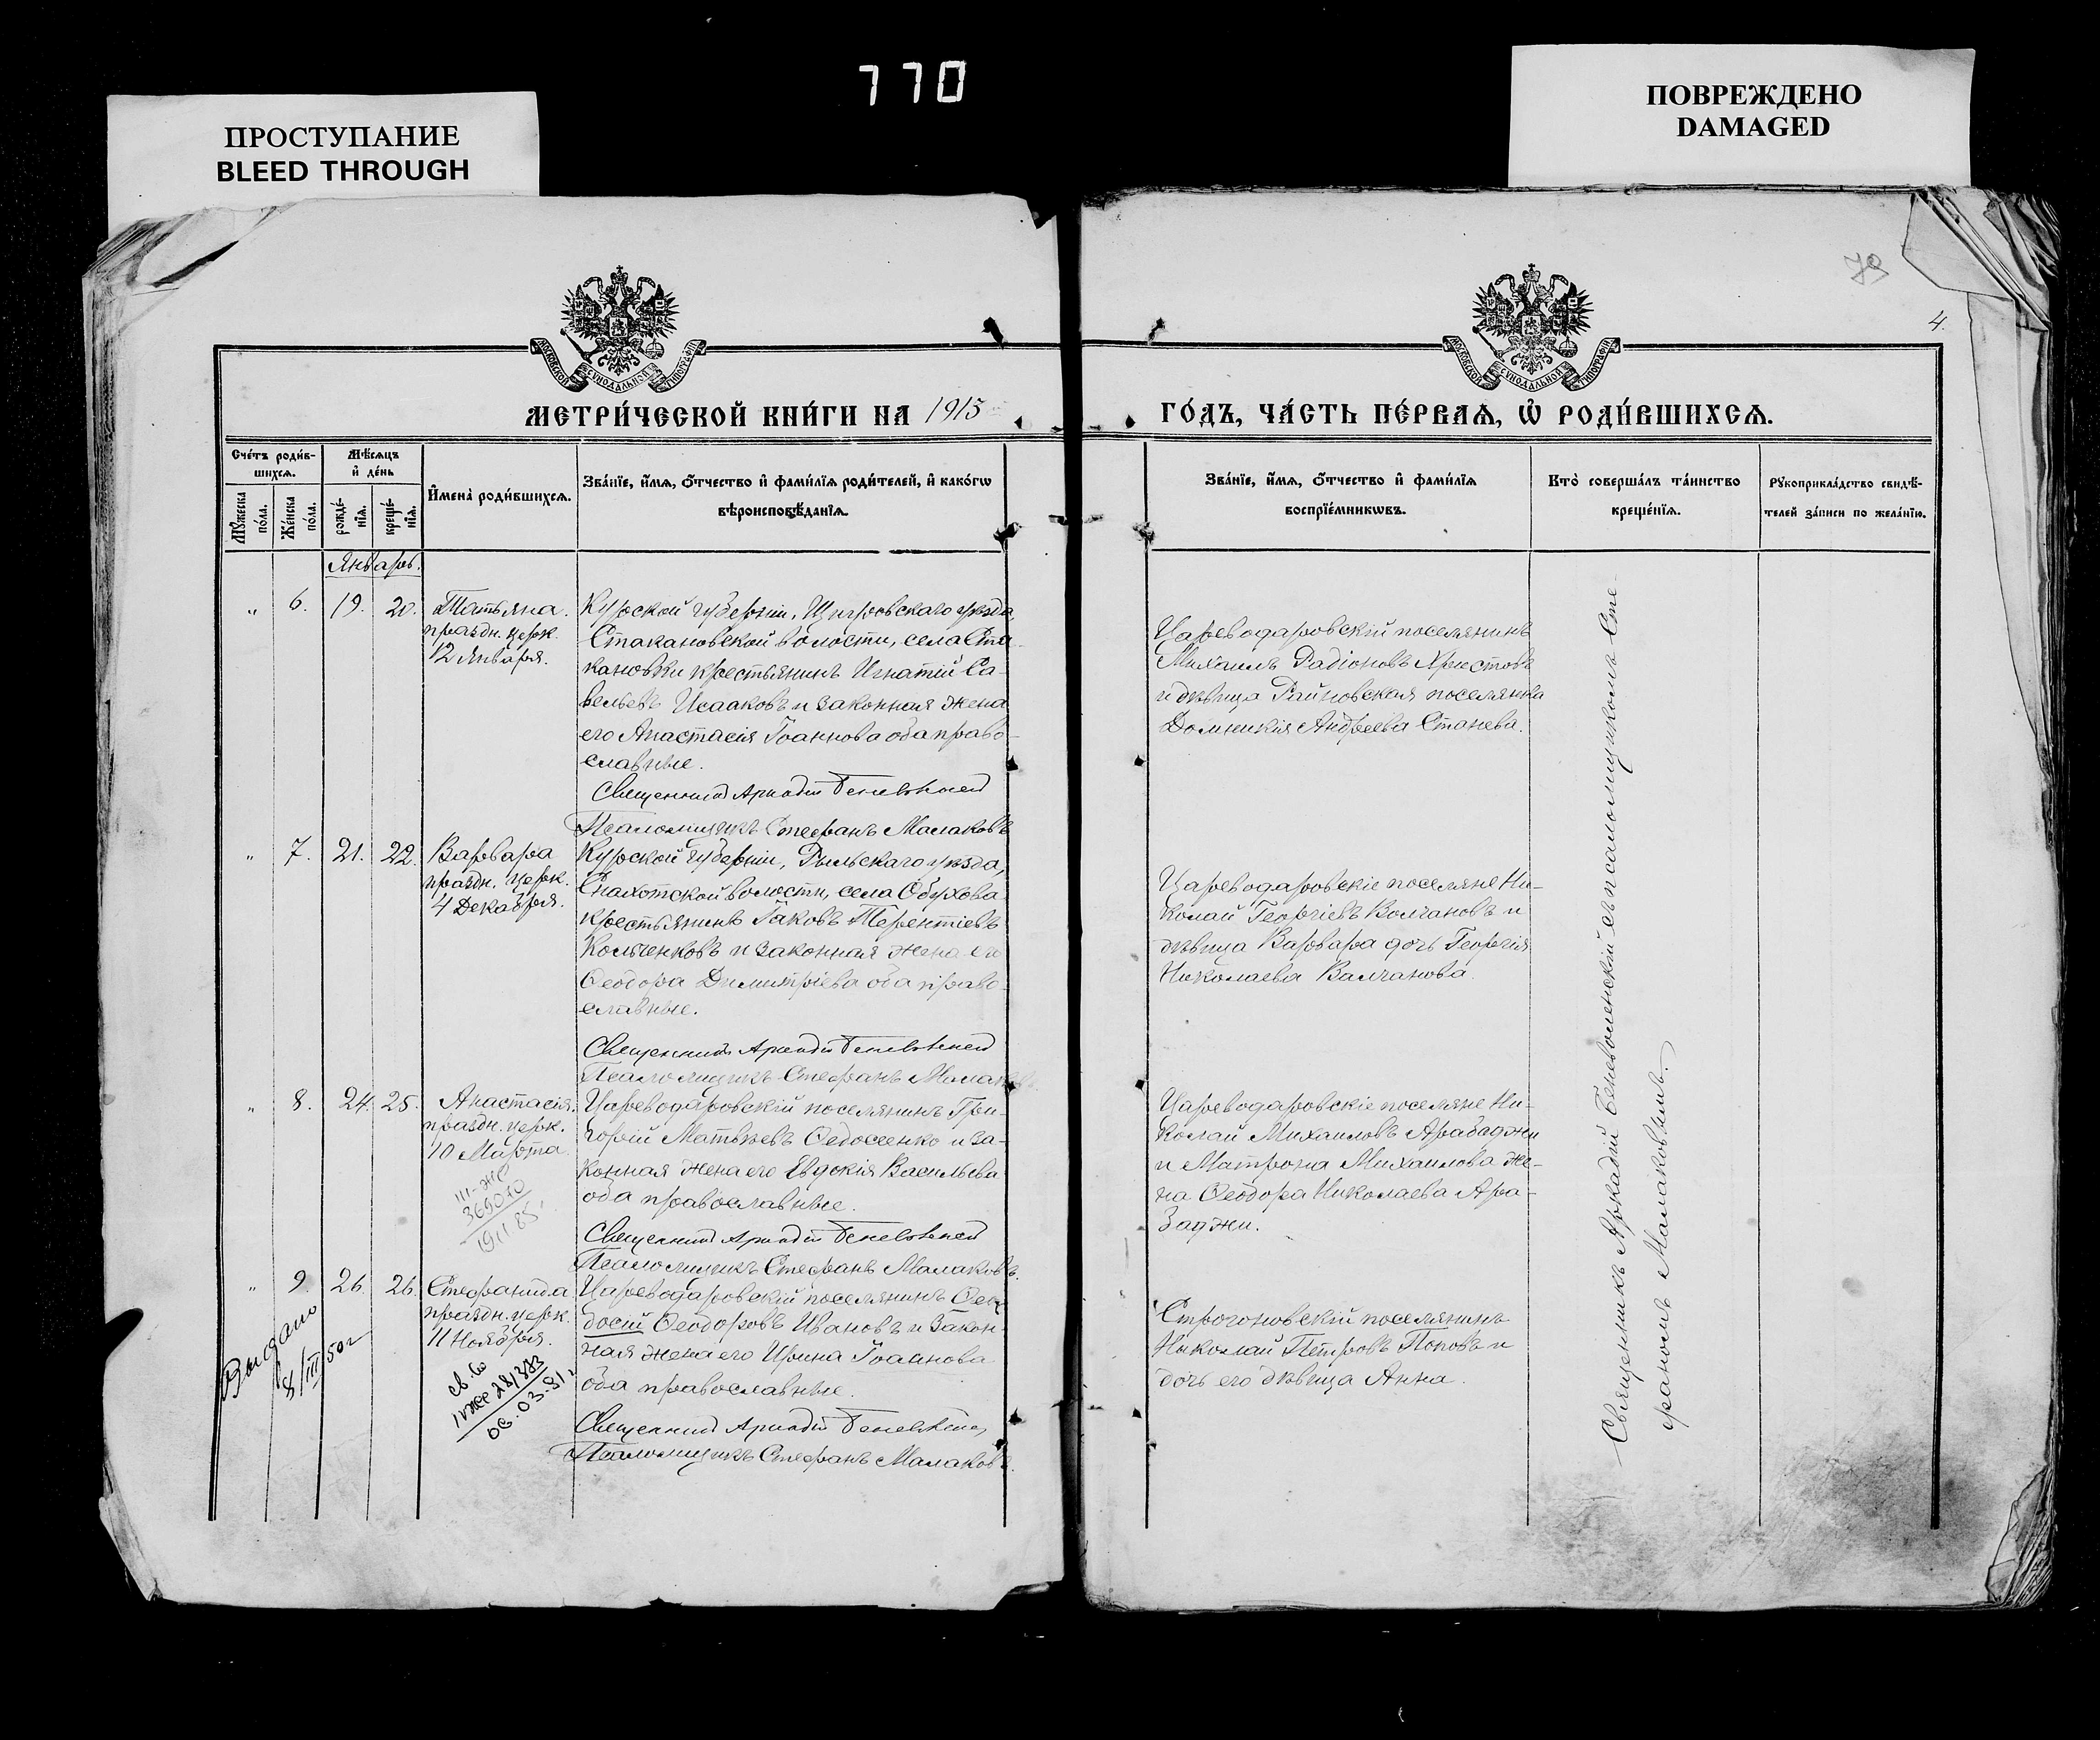 770
ПРОСТУПАНИЕ
BLEED THROUGH
ПОВРЕЖДЕНО
DAMAGED
79
4.
МОСКОВСКОЙ СУНОДАЛЬНОЙ ТИПОГРАФІИ
МОСКОВСКОЙ СУНОДАЛЬНОЙ ТИПОГРАФІИ
МЕТРИ́ЧЕСКОЙ КНИ́ГИ НА 1915
ГО́ДЪ, ЧА́СТЬ ПЕ́РВАѦ, Ѡ҆ РОДИ́ВШИХСѦ.
Сче́тъ роди́в-
шихсѧ.
Мѣ́сѧцъ
и҆ де́нь
Мꙋ́жеска
по́ла.
Же́нска
по́ла.
рожде́-
нїѧ.
креще́-
нїѧ.
И҆мена̀ роди́вшихсѧ.
Зва́нїе, и҆́мѧ, ѻ҆́тчество и҆ фами́лїѧ роди́телей, и҆ како́гѡ
вѣроисповѣ́данїѧ.
Зва́нїе, и҆́мѧ, ѻ҆́тчество и҆ фами́лїѧ
воспрїе́мникѡвъ.
Кто̀ соверша́лъ та́инство
креще́нїѧ.
Рꙋкоприкла́дство свидѣ́-
телей за́писи по жела́нїю.
Январь.
„ 6. 19. 20. Татьяна.
праздн. церк.
12 Января.
Курской губерніи, Щигровскаго уѣзда,
Стакановской волости, села Ста-
кановки крестьянинъ Игнатій Са-
вельевъ Исааковъ и законная жена
его Анастасія Іоаннова оба право-
славные.
Священникъ Аркадій Беневоленскій
Псаломщикъ Стефанъ Малаковъ
Цареводаровскій поселянинъ
Михаилъ Радіоновъ Христовъ
и дѣвица Райновская поселянка
Домникія Андреева Станева.
„ 7. 21. 22. Варвара
праздн. церк.
4 Декабря.
Курской губерніи, Рыльскаго уѣзда,
волости, села Обухова
крестьянинъ Іаковъ Терентіевъ
Кольченковъ и законная жена его
Ѳеодора Димитріева оба право-
славные.
Священникъ Аркадій Беневоленскій
Псаломщикъ Стефанъ Малаковъ
Цареводаровскіе поселяне Ни-
колай Георгіевъ Волчановъ и
дѣвица Варвара дочь Георгія
Николаева Валчанова.
„ 8. 24. 25. Анастасія.
праздн. церк.
10 Марта.
369070
1911 85
Цареводаровскій поселянинъ Гри-
горій Матвѣевъ Ѳедосеенко и за-
конная жена его Евдокія Васильева
оба православные.
Священникъ Аркадій Беневоленскій
Псаломщикъ Стефанъ Малаковъ.
Цареводаровскіе поселяне Ни-
колай Михаиловъ Арабаджи
и Матрона Михаилова же-
на Ѳеодора Николаева Ара-
баджи.
„ 9. 26. 26. Стефанида
праздн. церк.
11 Ноября.
Выдано
8/III 50г
св. во
281383
06.03.81
Цареводаровскій поселянинъ Ѳео-
досій Ѳеодоровъ Ивановъ и закон-
ная жена его Ирина Іоаннова
оба православные.
Священникъ Аркадій Беневоленскій
Псаломщикъ Стефанъ Малаковъ.
Строгоновскій поселянинъ
Николай Петровъ Поповъ и
дочь его дѣвица Анна.
Священникъ Аркадій Беневоленскій съ псаломщикомъ Сте-
фаномъ Малаковымъ.